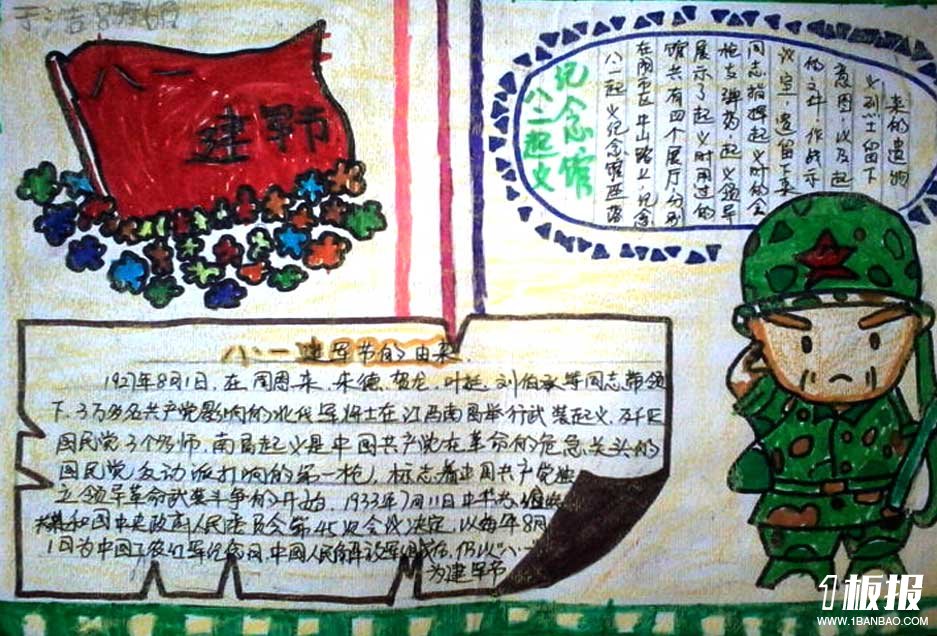 八一
建军节
八一起义
纪念馆
八一起义纪念馆座落
在南市区中山路上,纪念
馆共有四个展厅,分别
展示了起义时用过的
枪支弹药,起义领导
同志指挥起义时的会
议室,遗留下来
的文件,作战示
意图,以及起
义烈士留下
来的遗物
八一建军节的由来
1927年8月1日,在周恩来、朱德、贺龙、叶挺、刘伯承等同志带领
下,3万多名共产党影响的北伐军将士在江西南昌举行武装起义,歼
国民党3个师,南昌起义是中国共产党在革命的危急关头向
国民党反动派打响的第一枪,标志着中国共产党独
立领军革命武装斗争的开始。1933年7月11日中
和国中央政府人民委员会第45次会议决定,以每年8月
1日为中国工农红军纪念日,中国人民解放军组成后,仍以"八一"
为建军节
1板报
WWW.1BANBAO.COM